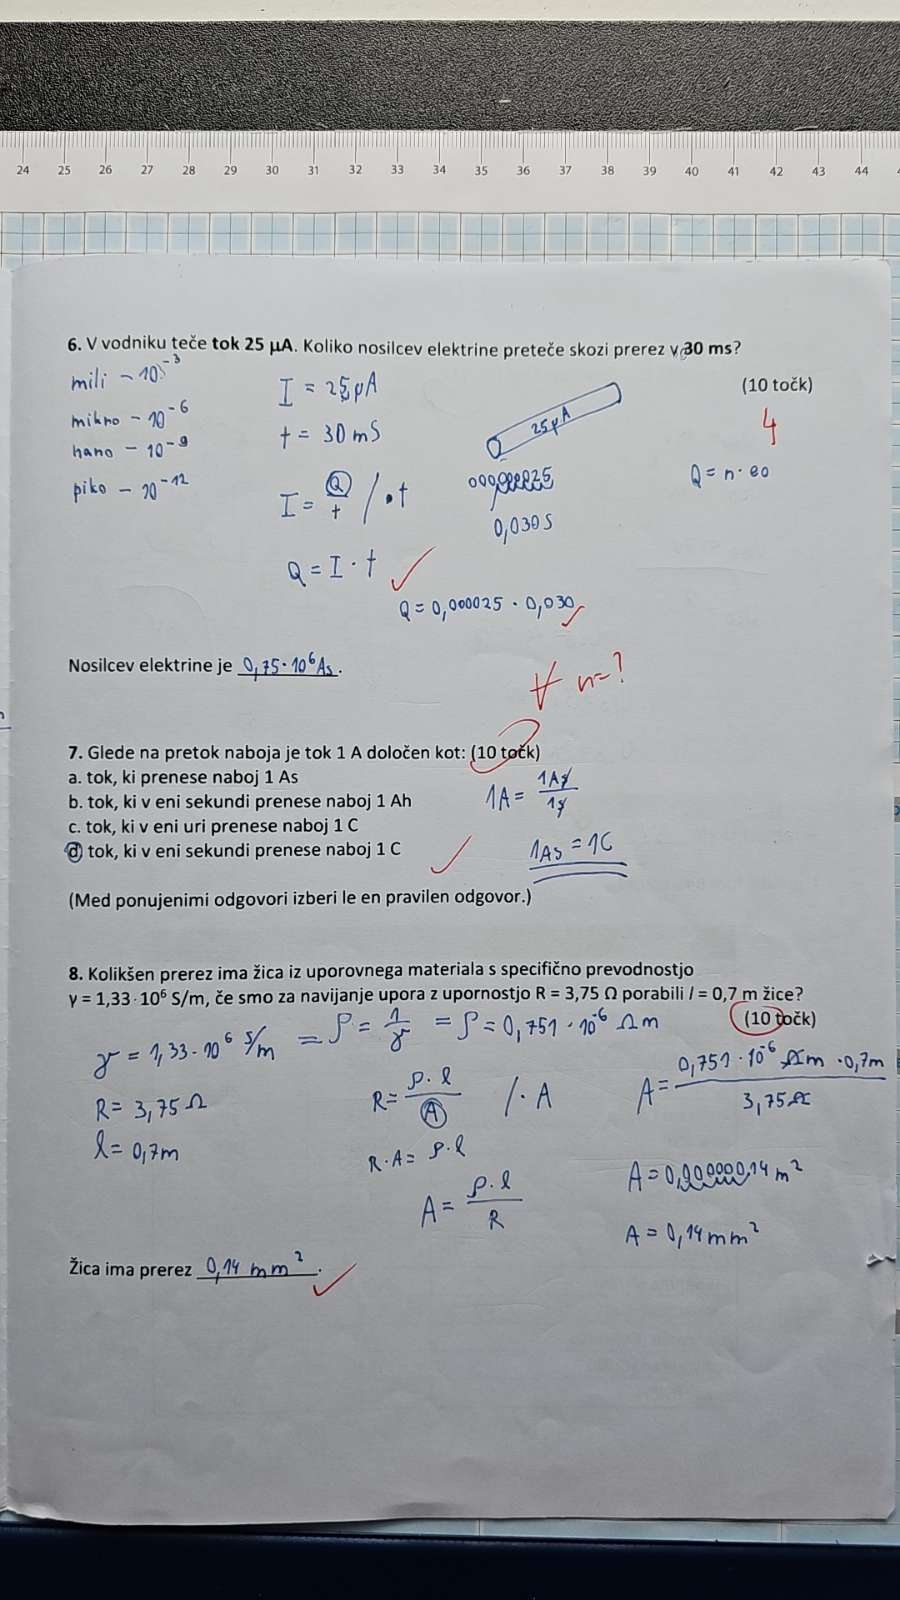 24 25 26 27 28 29 30 31 32 33 34 35 36 37 38 39 40 41 42 43 44
6. V vodniku teče tok 25 µA. Koliko nosilcev elektrine preteče skozi prerez v 30 ms?
(10 točk)
4
mili – 10⁻³
mikro – 10⁻⁶
nano – 10⁻⁹
piko – 10⁻¹²
I = 25µA
t = 30ms
I = Q/t /·t
Q = I · t
25µA
0,030s
Q = n · eo
Q = 0,000025 · 0,030
Nosilcev elektrine je 0,75·10⁶As.
n=?
7. Glede na pretok naboja je tok 1 A določen kot: (10 točk)
a. tok, ki prenese naboj 1 As
b. tok, ki v eni sekundi prenese naboj 1 Ah
c. tok, ki v eni uri prenese naboj 1 C
d. tok, ki v eni sekundi prenese naboj 1 C
1A = 1As/1s
1As = 1C
(Med ponujenimi odgovori izberi le en pravilen odgovor.)
8. Kolikšen prerez ima žica iz uporovnega materiala s specifično prevodnostjo
γ = 1,33·10⁶ S/m, če smo za navijanje upora z upornostjo R = 3,75 Ω porabili l = 0,7 m žice?
(10 točk)
γ = 1,33·10⁶ S/m = ρ = 1/γ = ρ = 0,751·10⁻⁶ Ωm
R = 3,75Ω
l = 0,7m
R = ρ·l/A /·A
R·A = ρ·l
A = ρ·l/R
A = 0,751·10⁻⁶ Ωm·0,7m/3,75Ω
A = 0,000000,14m²
A = 0,14mm²
Žica ima prerez 0,14 mm².